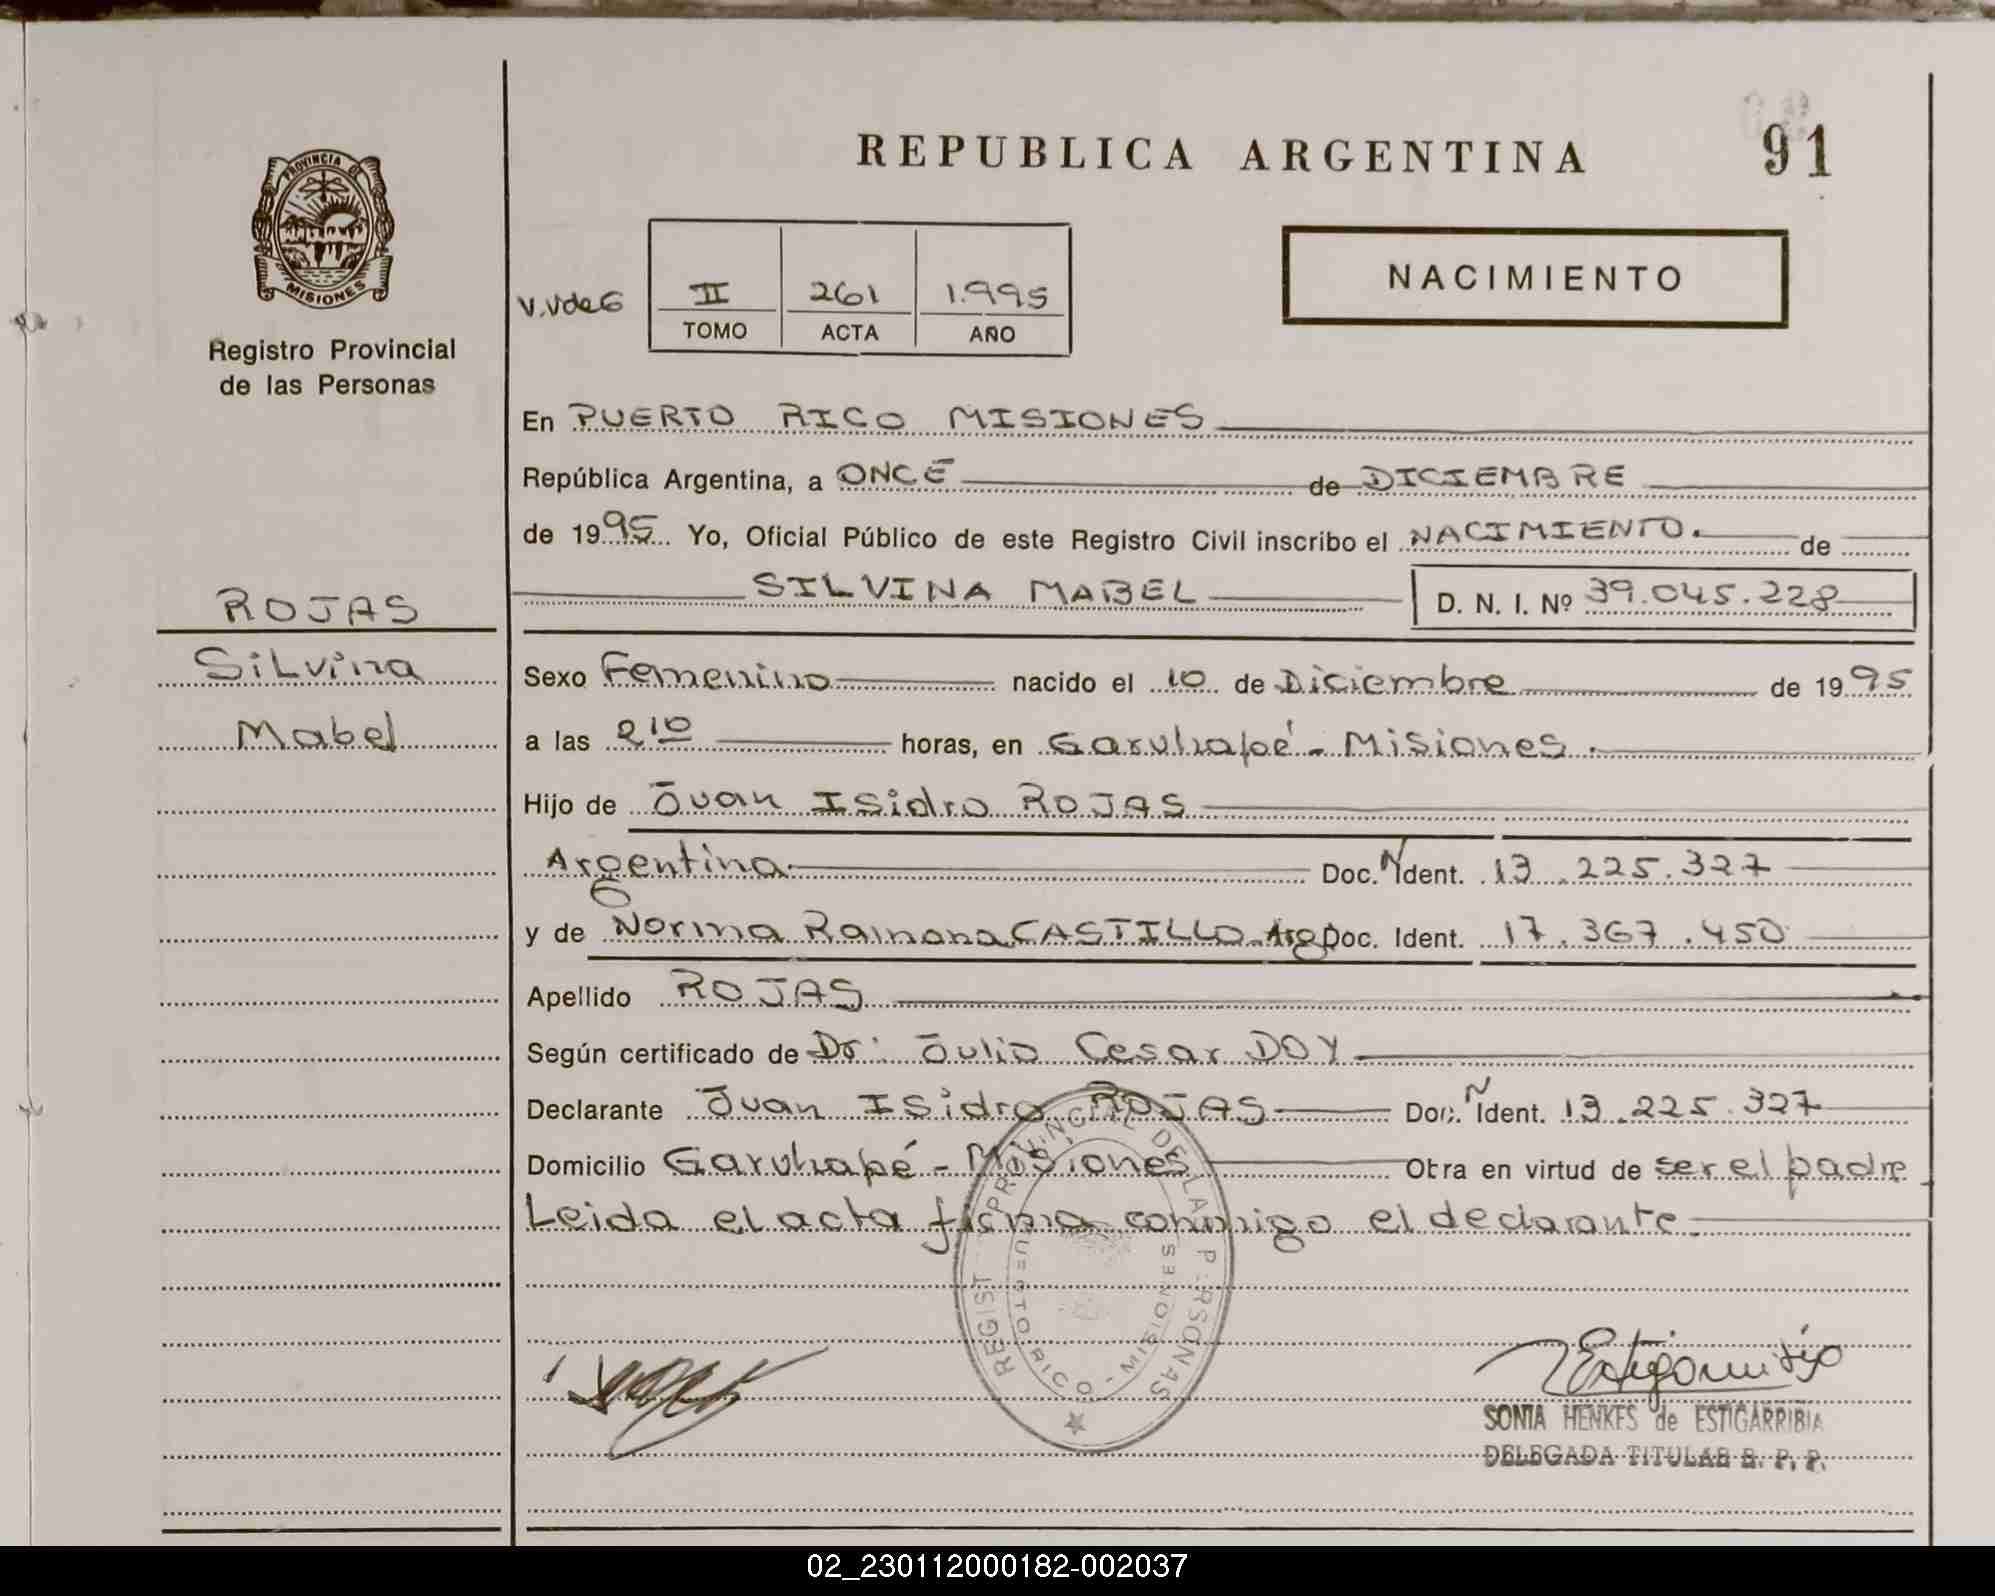 REPUBLICA ARGENTINA 91
PROVINCIA DE
MISIONES
Registro Provincial
de las Personas
NACIMIENTO
V.VdeG
II 261 1.995
TOMO ACTA AÑO
En PUERTO RICO MISIONES
República Argentina, a ONCE de DICIEMBRE
de 1995 Yo, Oficial Público de este Registro Civil inscribo el NACIMIENTO. de
SILVINA MABEL D. N. I. Nº 39.045.228
ROJAS
Silvina
Mabel
Sexo Femenino nacido el 10 de Diciembre de 1995
a las 2 10 horas, en Garuhapé - Misiones.
Hijo de Juan Isidro ROJAS
Argentina Doc. N Ident. 13.225.327
y de Norma Ramona CASTILLO - Arg Doc. Ident. 17.367.450
Apellido ROJAS
Según certificado de Dr. Julio Cesar DOY
Declarante Juan Isidro ROJAS Doc. N Ident. 13.225.327
Domicilio Garuhapé - Misiones Obra en virtud de ser el padre
Leida el acta firma conmigo el declarante.
REGIST PROVINCIAL DE LAS PERSONAS
PUERTO RICO - MISIONES
SONIA HENKES de ESTIGARRIBIA
DELEGADA TITULAR R. P. P.
02_230112000182-002037